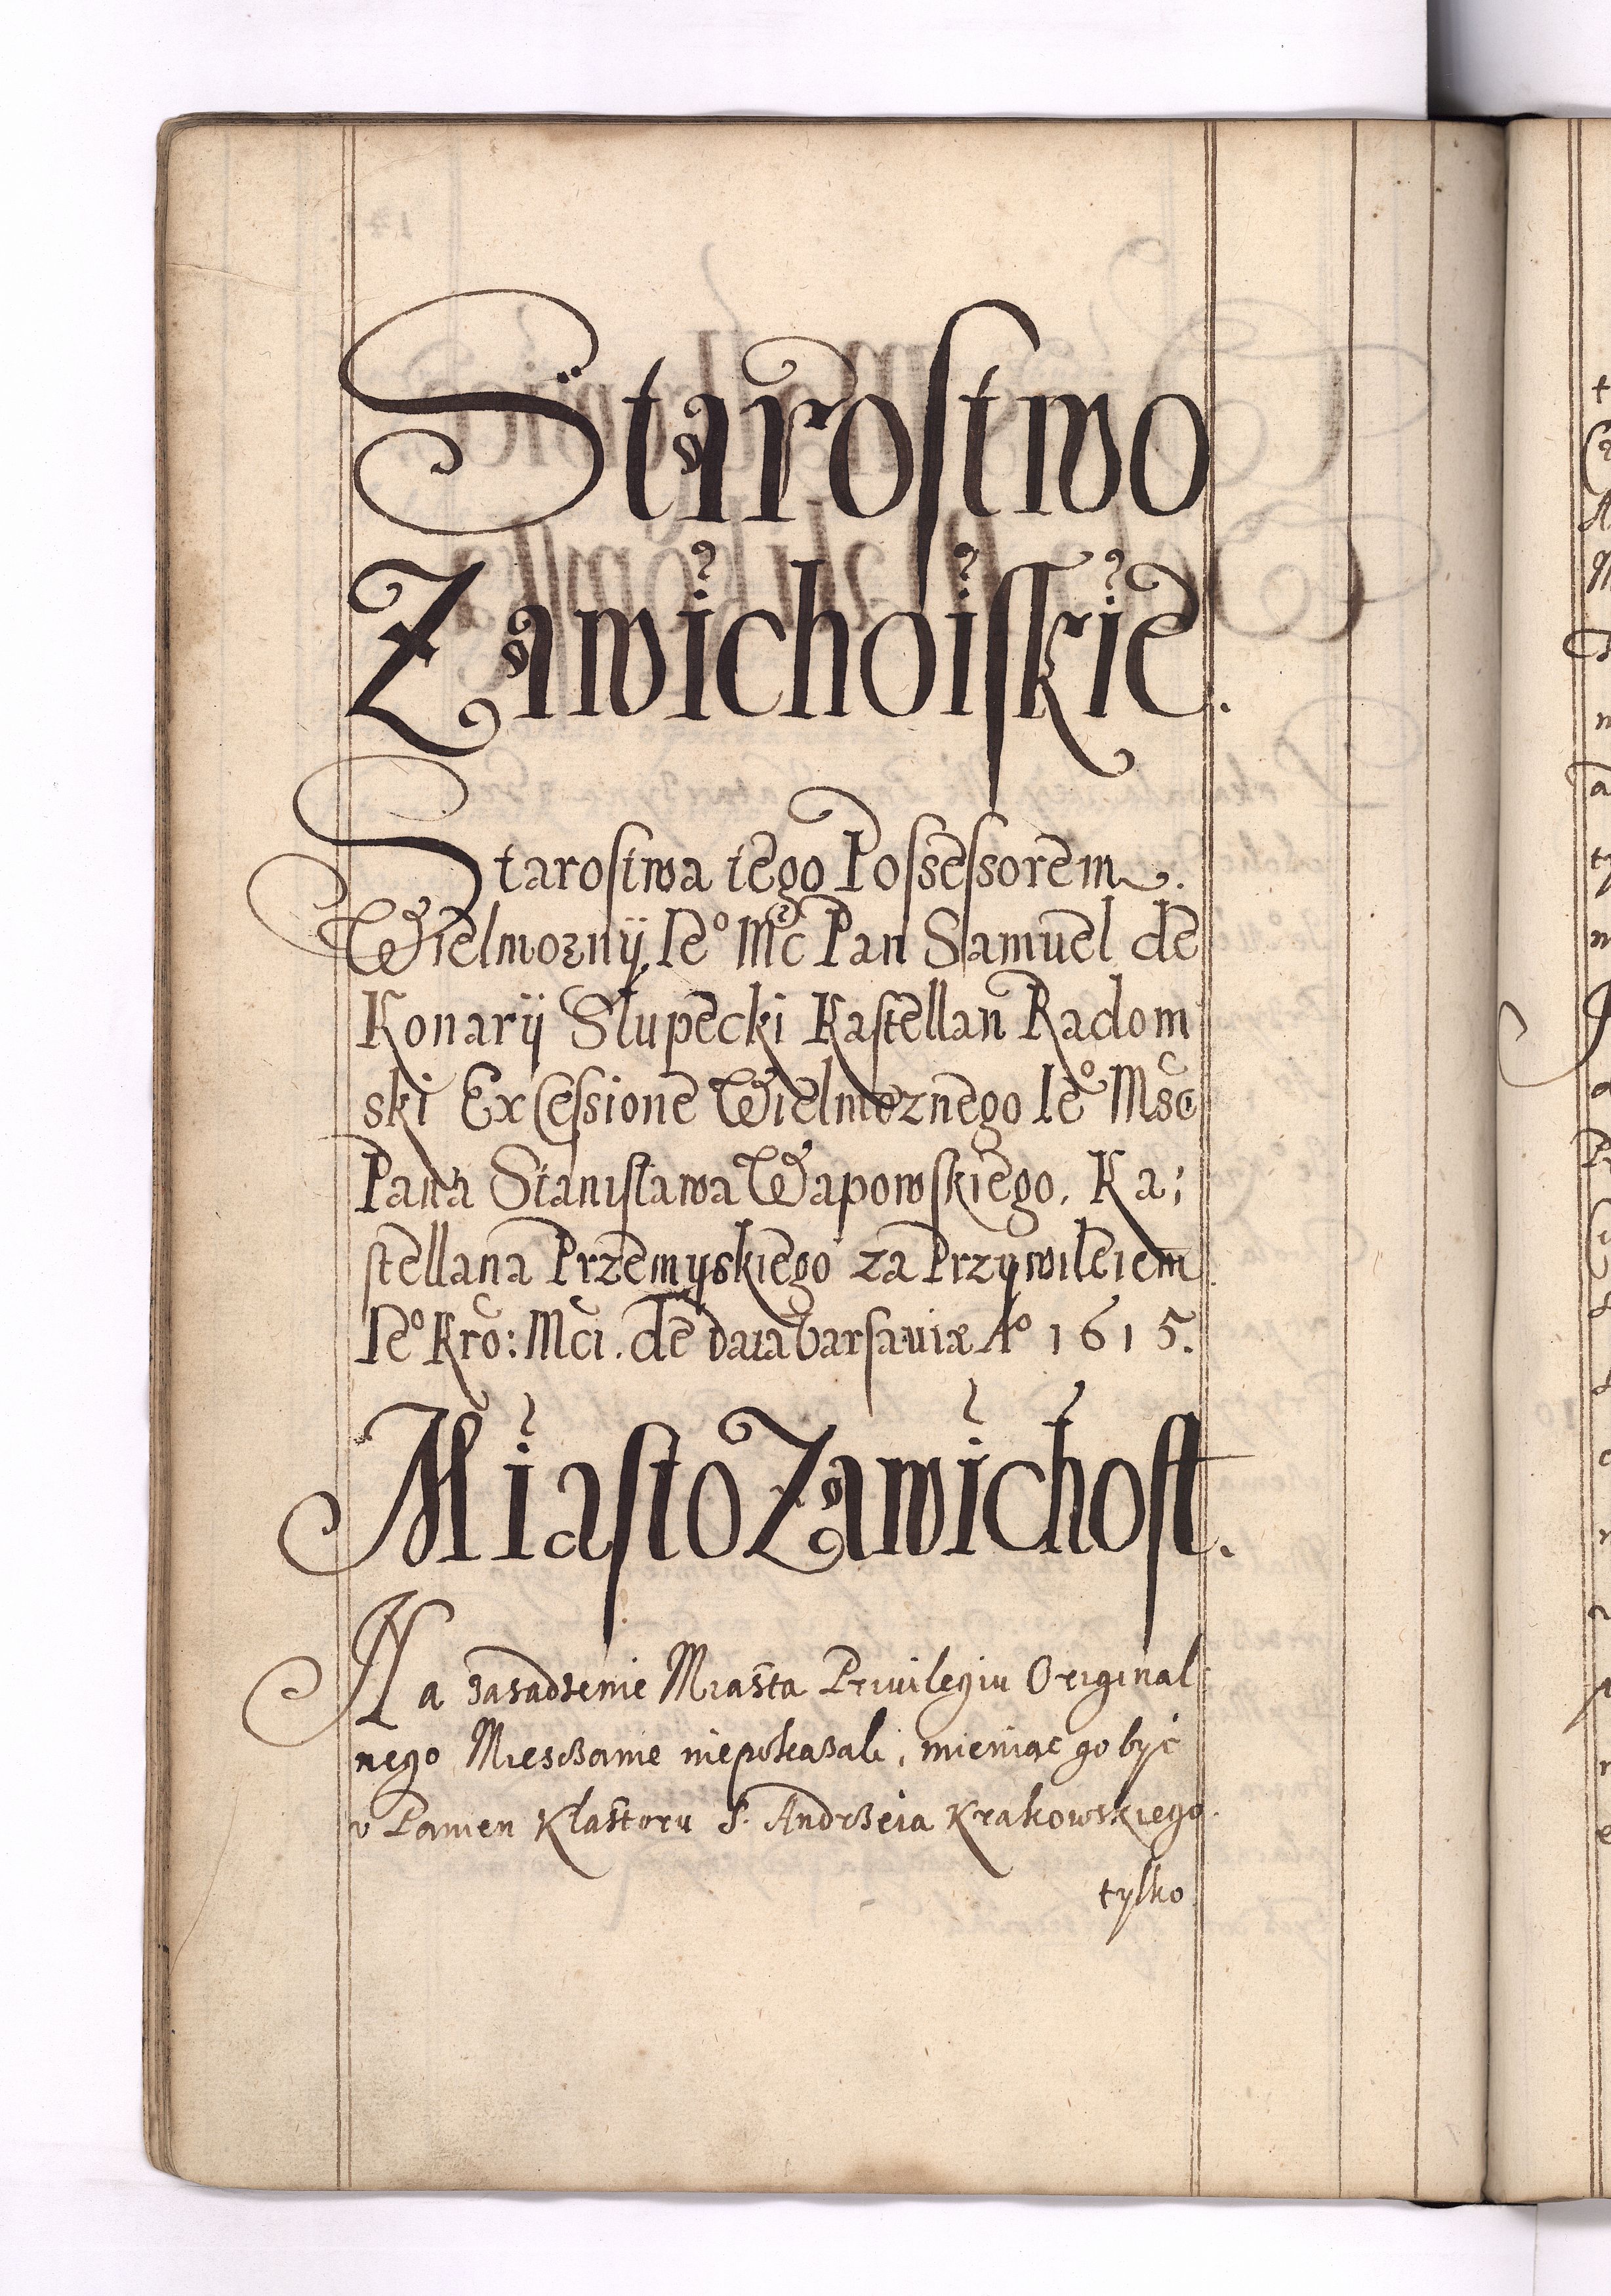 Starostwo
Zawichoiskie.
Starostwa tego Possessorem.
Wielmoznÿ Ieº Mc̃ Pan Samuel de
Konarÿ Słupecki Kastellan Radom
ski Ex Cessione Wielmoznego Ieº Msc̃
Pana Stanisława Wapowskiego. Ka:
stellana Przemÿskiego za Przÿwileiem
Ieº Kro: Mci. de Data Varsauiæ Aº 1615.
Miasto Zawichost.
Na zasadzenie Miasta Priuilegiu Original
nego Miesczanie niepokazali, mieniąc go być
v Panien Klastoru S. Andrzeia Krakowskiego.
tylko